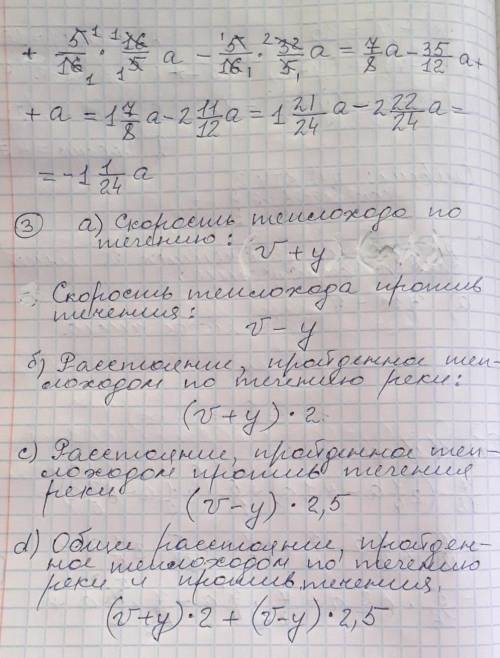 + 5/16 · 16/5 a − 5/16 · 32/5 a = 7/8 a − 35/12 a +
+ a = 1 7/8 a − 2 11/12 a = 1 21/24 a − 2 22/24 a =
= −1 1/24 a
③ а) Скорость теплохода по
течению:
v + y
Скорость теплохода против
течения:
v − y
б) Расстояние, пройденное теп-
лоходом по течению реки:
(v + y) · 2
c) Расстояние, пройденное теп-
лоходом против течения
реки
(v − y) · 2,5
d) Общее расстояние, пройден-
ное теплоходом по течению
реки и против течения.
(v+y) · 2 + (v−y) · 2,5